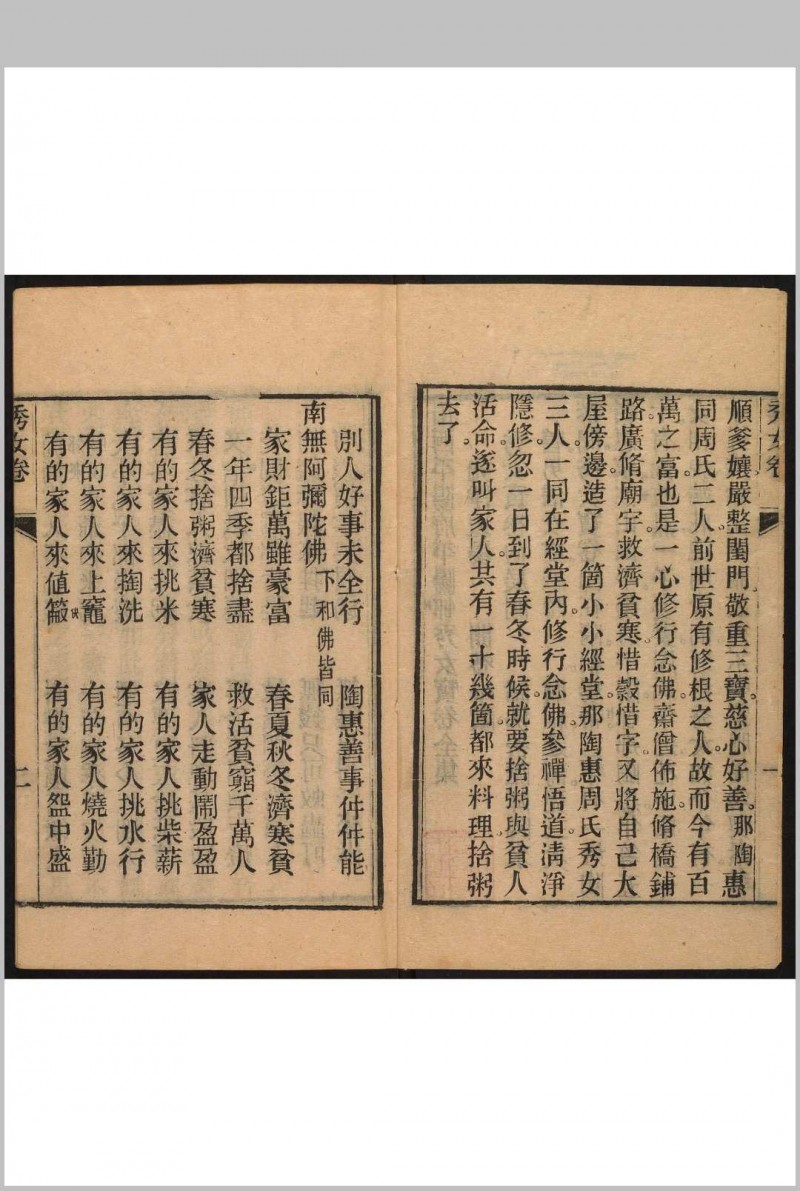 秀女卷
一
順爹孃。嚴整閨門。敬重三寶。慈心好善。那陶惠
同周氏二人前世原有修根之人故而今有百
萬之富。也是一心修行念佛。齋僧佈施。脩橋鋪
路。廣脩廟宇。救濟貧寒。惜穀惜字。又將自己大
屋傍邊。造了一箇小小經堂。那陶惠周氏秀女
三人。一同在經堂內。修行念佛。參禪悟道。清淨
隱修。忽一日。到了春冬時候。就要捨粥與貧人
活命。遂叫家人。共有一十幾箇。都來料理捨粥
去了。
別人好事未全行 陶惠善事件件能
南無阿彌陀佛 下和佛皆同
家財鉅萬雖豪富 春夏秋冬濟寒貧
一年四季都捨盡 救活貧窮千萬人
春冬捨粥濟貧寒 家人走動鬧盈盈
有的家人來挑米 有的家人挑柴薪
有的家人來掏洗 有的家人挑水行
有的家人來上竈 有的家人燒火勤
有的家人來值 有的家人盌中盛
秀女卷
二